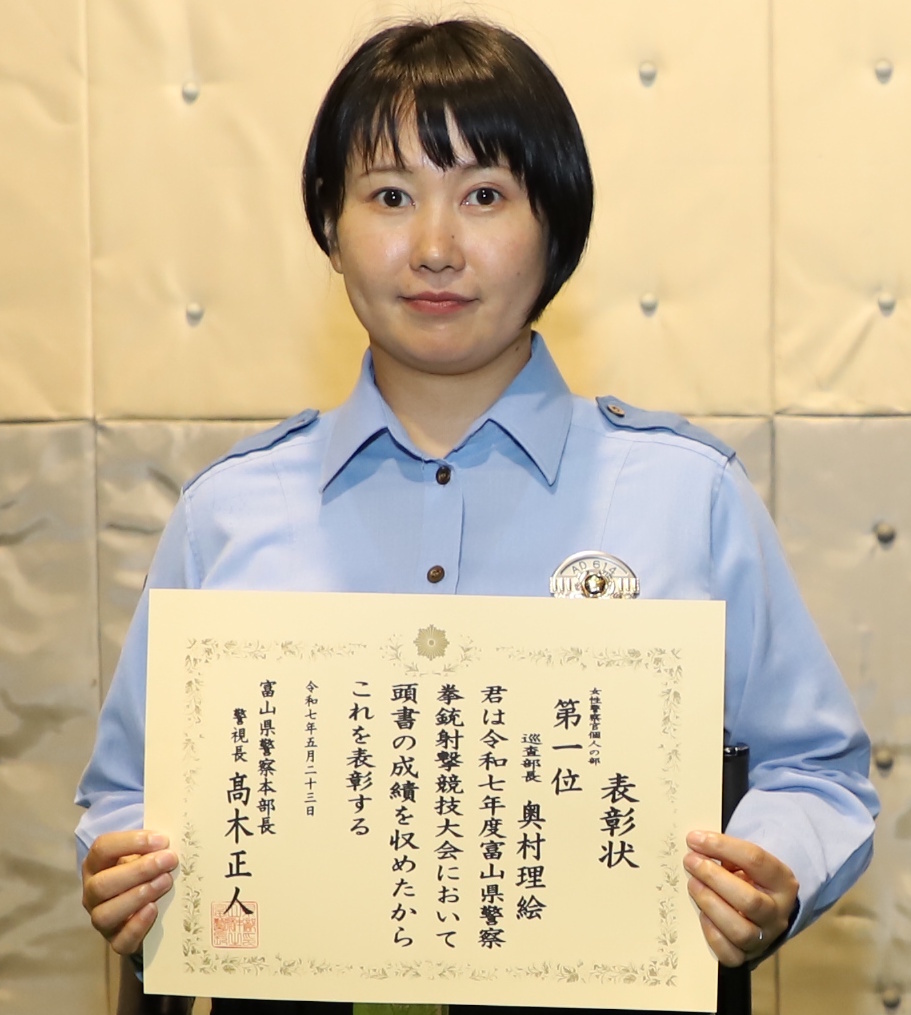 AD 614
表彰状
女性警察官個人の部
第一位
巡査部長 奥村理絵
君は令和七年度富山県警察
拳銃射撃競技大会において
頭書の成績を収めたから
これを表彰する
令和七年五月二十三日
富山県警察本部長
警視長 髙木正人